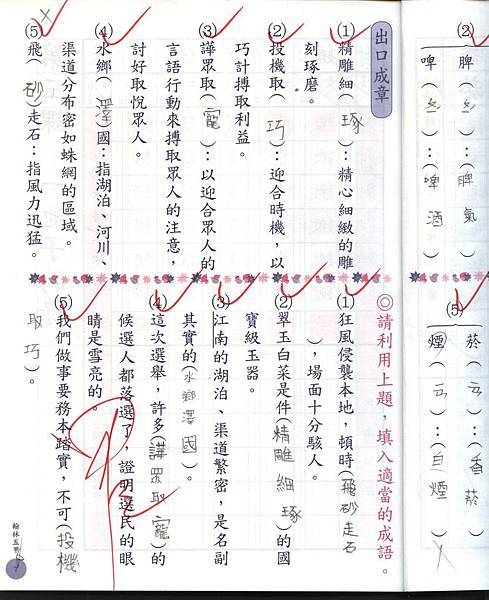 (2) 脾（ㄆㄧˊ）：（脾氣）
啤（ㄆㄧˊ）：（啤酒）
(5) 菸（ㄧㄢ）：（香菸）
煙（ㄧㄢ）：（白煙）
出口成章
(1) 精雕細（琢）：精心細緻的雕
刻琢磨。
(2) 投機取（巧）：迎合時機，以
巧計搏取利益。
(3) 譁眾取（寵）：以迎合眾人的
言語行動來搏取眾人的注意，
討好取悅眾人。
(4) 水鄉（澤）國：指湖泊、河川、
渠道分布密如蛛網的區域。
(5) 飛（砂）走石：指風力迅猛。
◎請利用上題，填入適當的成語。
(1) 狂風侵襲本地，頓時（飛砂走石
），場面十分駭人。
(2) 翠玉白菜是件（精雕細琢）的國
寶級玉器。
(3) 江南的湖泊、渠道繁密，是名副
其實的（水鄉澤國）。
(4) 這次選舉，許多（譁眾取寵）的
候選人都落選了，證明選民的眼
睛是雪亮的。
(5) 我們做事要務本踏實，不可（投機
取巧）。
翰林五